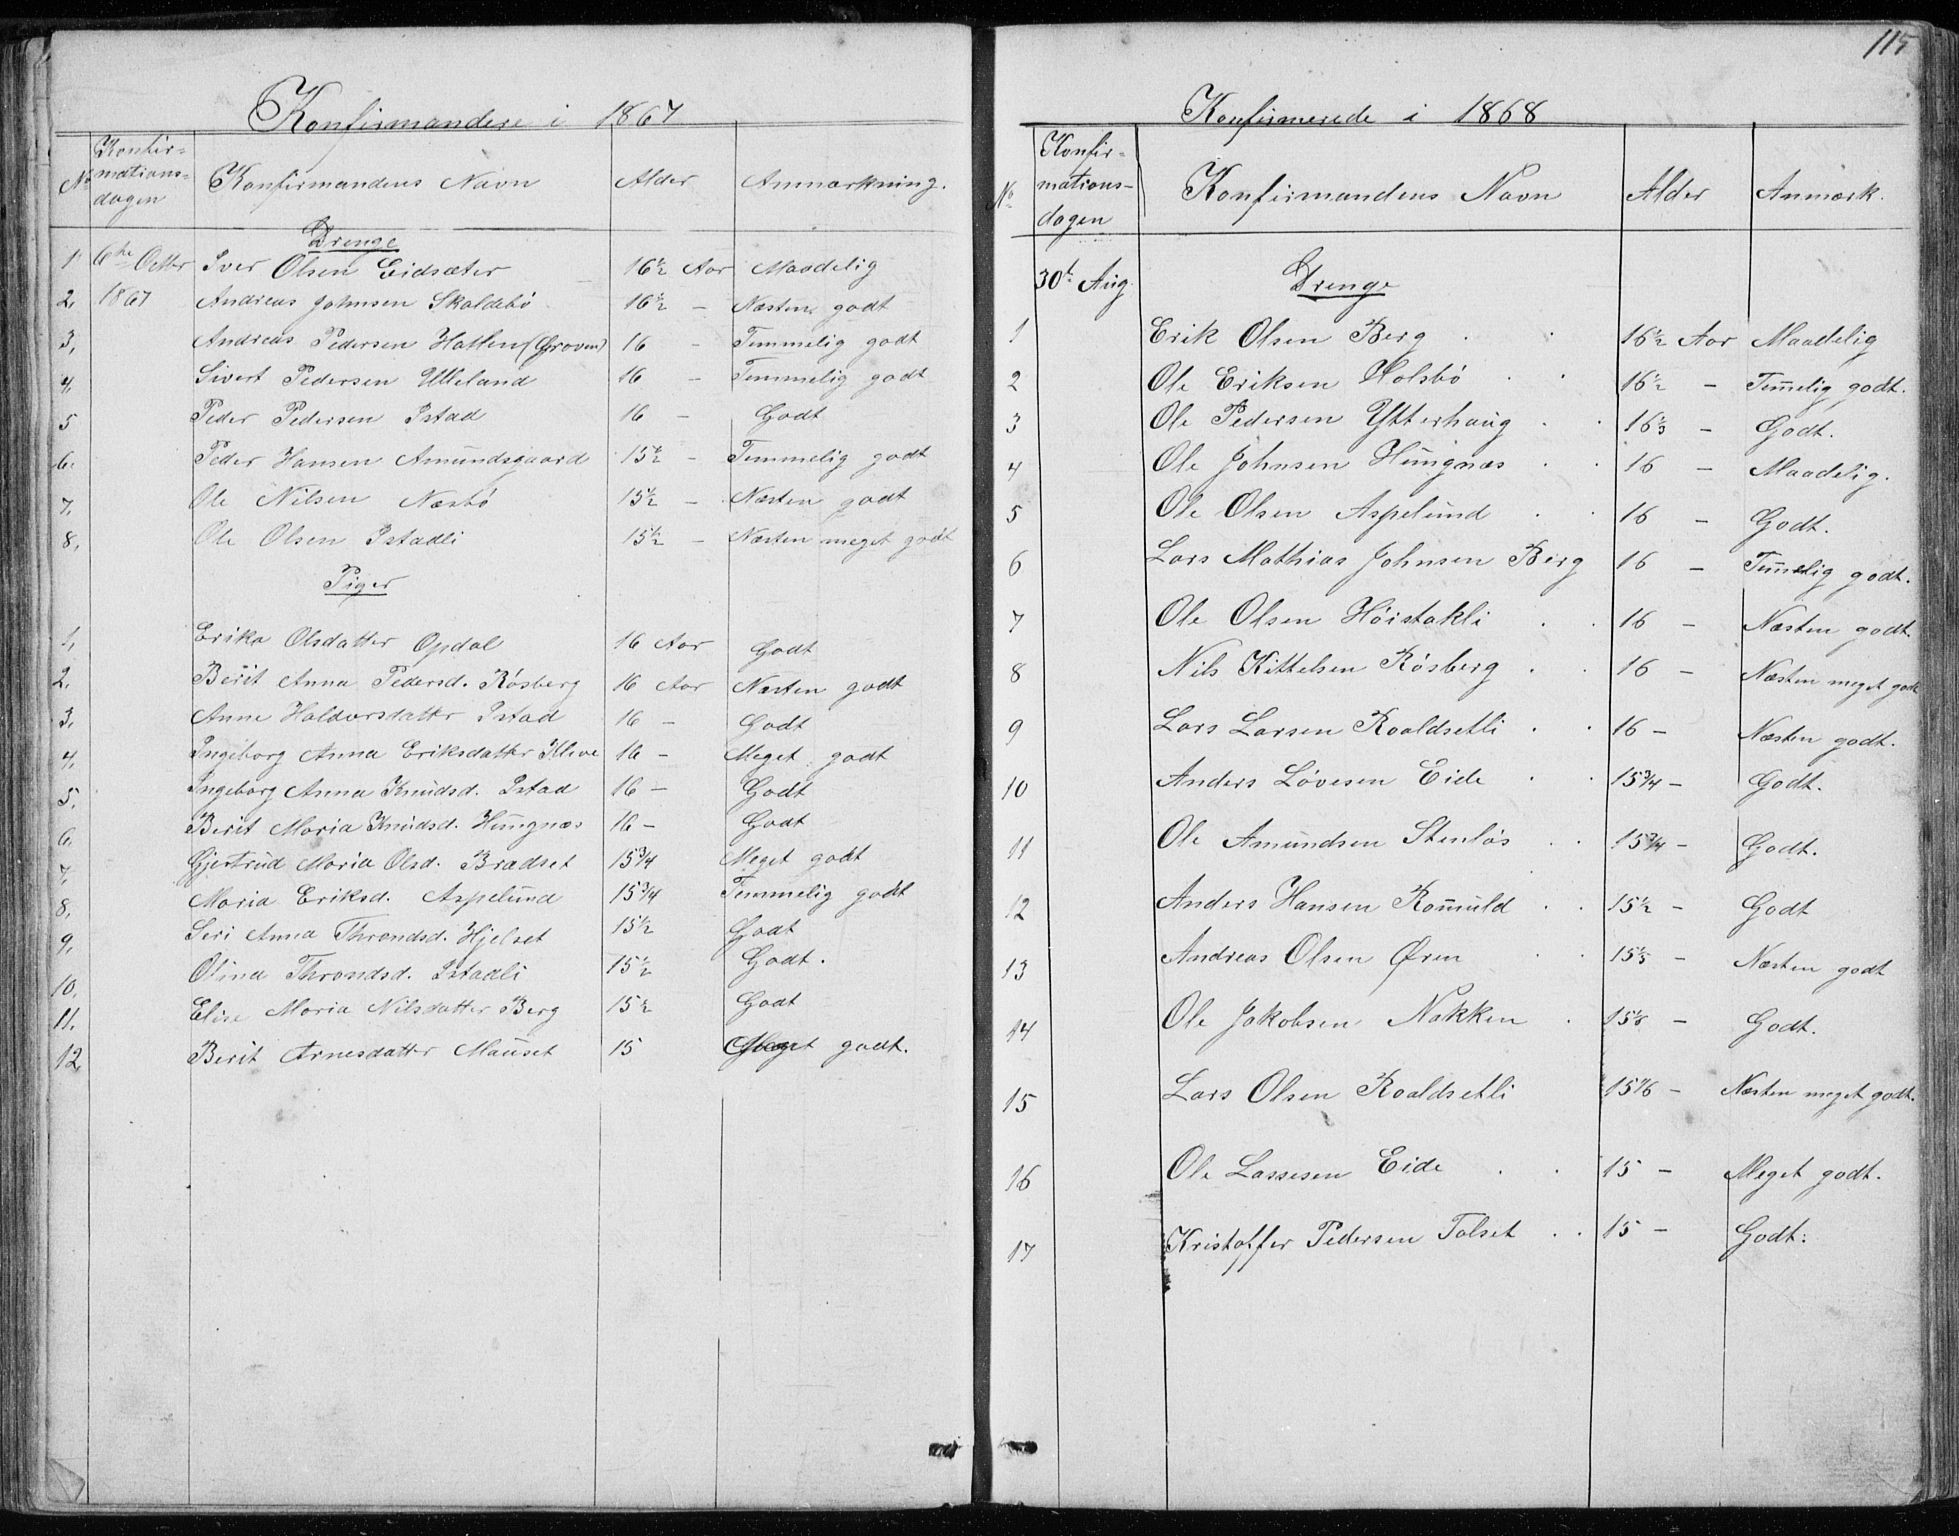 Konfirmandere i 1867
No Konfir-mations-dagen Konfirmandens Navn Alder Anmærkning.
Drenge
1 6te Octbr Iver Olsen Eidsæter 16½ Aar Maadelig
2, 1867 Andreas Johnsen Skaldebø 16½ – Næsten godt
3, Andreas Pedersen Hatlen (Groven) 16 – Temmelig godt
4, Sivert Pedersen Ulleland 16 – Temmelig godt
5 Peder Pedersen Istad 16 – Godt
6. Peder Hansen Amundsgaard 15½ – Temmelig godt
7, Ole Nilsen Næsbø 15½ – Næsten godt
8, Ole Olsen Istadli 15½ – Næsten meget godt
Piger
1, Erika Olsdatter Opdal 16 Aar Godt
2, Berit Anna Pedersd. Røsberg 16 Aar Næsten godt
3, Anne Haldorsdatter Istad 16 – Godt
4, Ingeborg Anna Eriksdatter Kleve 16 – Meget godt
5. Ingeborg Anna Knudsd. Istad 16 – Godt
6. Berit Maria Knudsd. Hungnæs 16 – Godt
7, Gjertrud Maria Olsd. Brædset 15¾ Meget godt
8, Maria Eriksd. Aspelund 15¾ Temmelig godt
9, Seri Anna Throndsd. Hjelset 15½ Godt
10, Olina Throndsd. Istadli 15½ Godt.
11. Elise Maria Nilsdatter Berg 15½ Godt
12, Berit Arnesdatter Mauset 15 Meget godt.
115
Konfirmerede i 1868
No Konfir-mations-dagen Konfirmandens Navn Alder Anmærk.
30t Aug. Drenge
1 Erik Olsen Berg . 16½ Aar Maadelig
2 Ole Eriksen Holsbø . . 16½ – Tem̄elig godt.
3 Ole Pedersen Ytterhaug . . 16⅓ – Godt.
4 Ole Johnsen Hungnæs . . 16 – Maadelig.
5 Ole Olsen Aspelund . . 16 – Godt.
6 Lars Mathias Johnsen Berg 16 – Tem̄elig godt.
7 Ole Olsen Høistakli . . 16 – Næsten godt
8 Nils Kittelsen Røsberg . . 16 – Næsten meget godt
9 Lars Larsen Roaldsetli . . 16 – Næsten godt.
10 Anders Løvesen Eide . . 15¾ – Godt.
11 Ole Amundsen Stenløs . . 15¾ – Godt.
12 Anders Hansen Rom̄uld . . 15½ – Godt
13 Andreas Olsen Øren . . 15⅓ – Næsten godt
14 Ole Jakobsen Nakken . – Godt.
15 Lars Olsen Roaldsetli 15⅙ – Næsten meget godt.
16 Ole Lassesen Eide . . 15 – Meget godt.
17 Kristoffer Pedersen Tolset . . 15 – Godt.